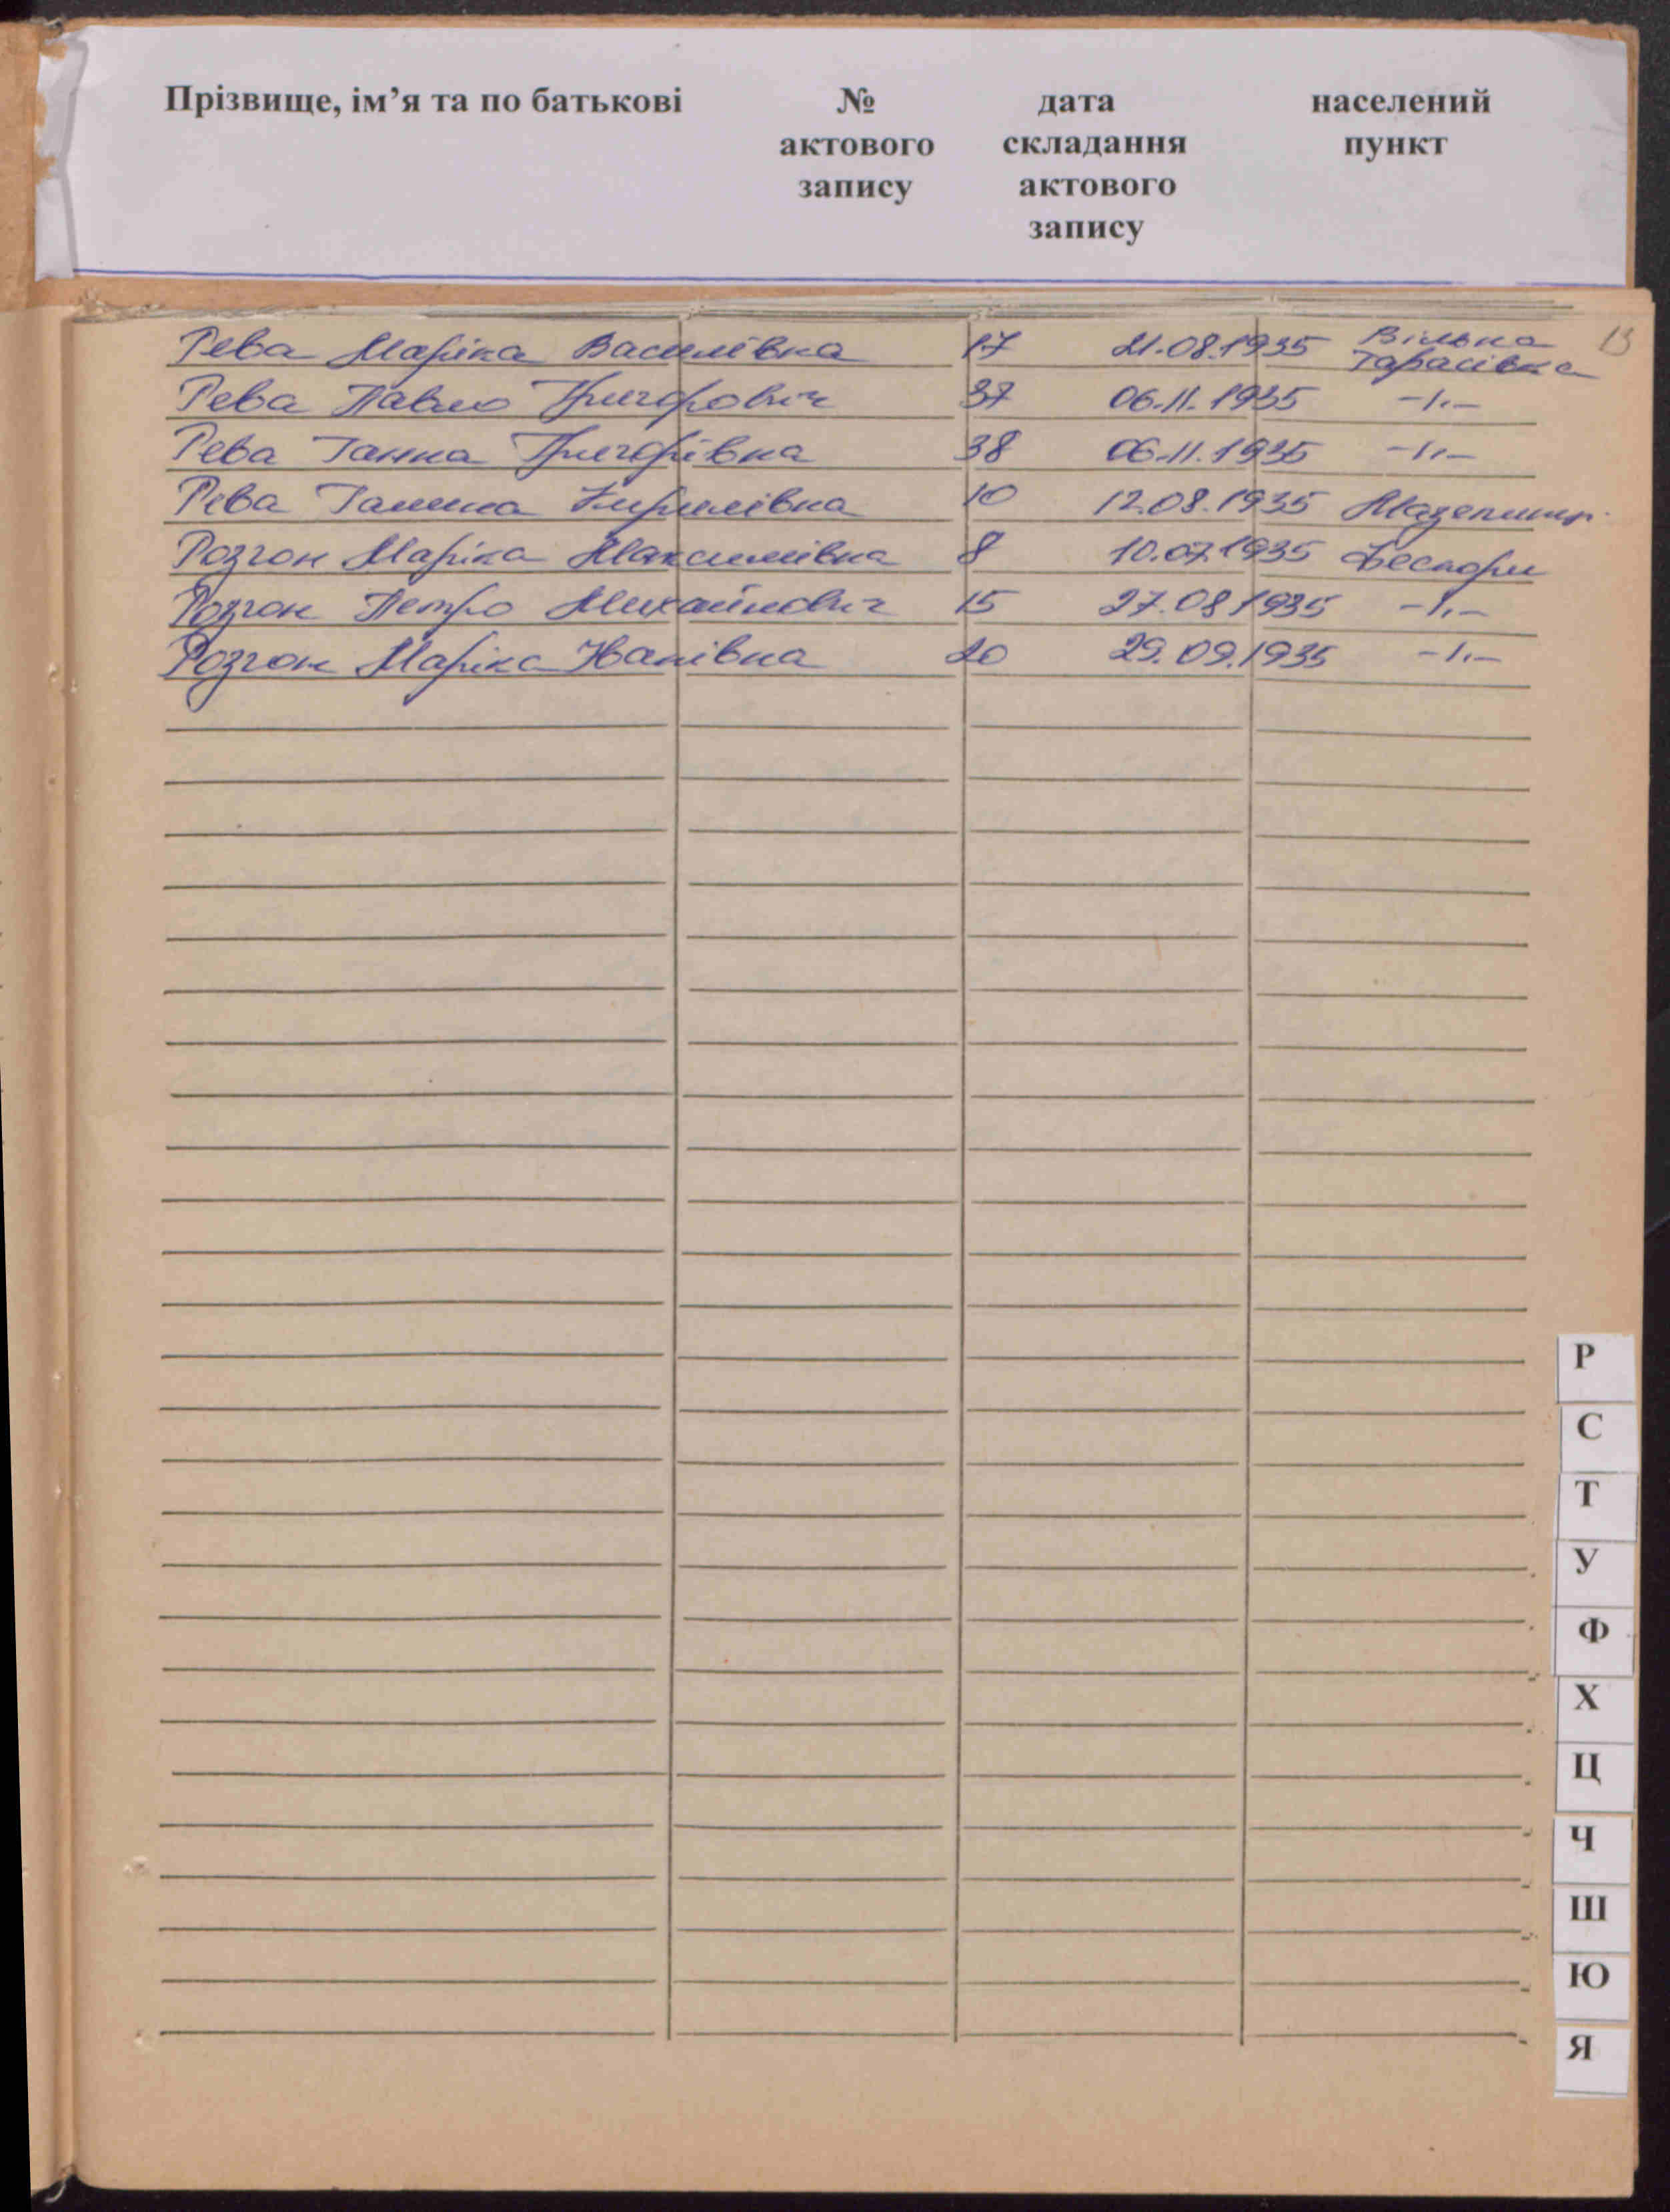 Прізвище, ім’я та по батькові № дата населений
актового складання пункт
запису актового
запису
Рева Маріка Василівна 17 21.08.1935 Вільна Тарасівка 13
Рева Павло Григорович 37 06.11.1935 -〃-
Рева Ганна Григорівна 38 06.11.1935 -〃-
Рева Галина Кирилівна 10 12.08.1935
Розгон Маріка Максимівна 8 10.07.1935
Розгон Петро Михайлович 15 27.08.1935 -〃-
Розгон Маріка Іванівна 20 29.09.1935 -〃-
Р
С
Т
У
Ф
Х
Ц
Ч
Ш
Ю
Я